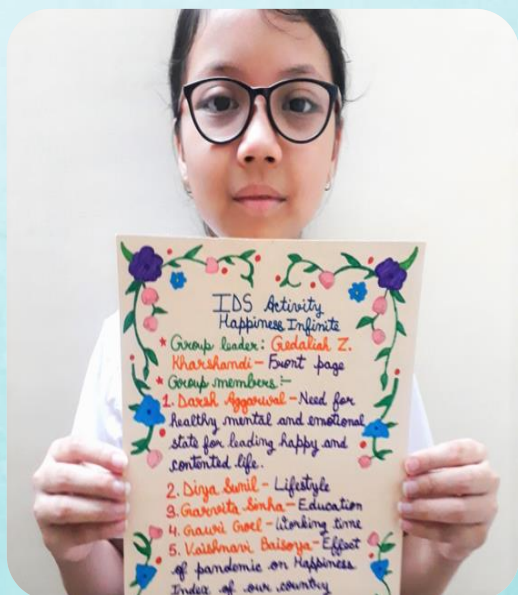 IDS Activity
Happiness Infinite
* Group leader: Gedaliah Z.
Kharshandi - Front page
* Group members:-
1. Darsh Aggarwal - Need for
healthy mental and emotional
state for leading happy and
contented life.
2. Divya Sunil - Lifestyle
3. Garvita Sinha - Education
4. Gauri Goel - Working time
5. Vaishnavi Baisoya - Effect
of pandemic on Happiness
Index of our country